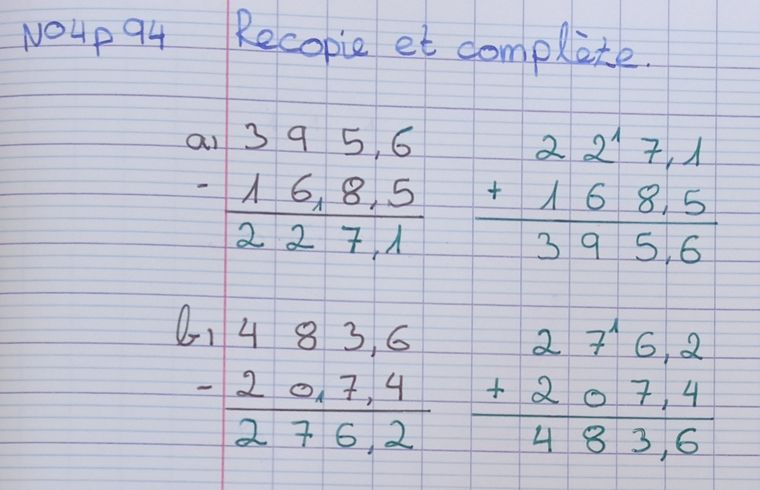 N°4p94 Recopie et complète.
a) 3 9 5,6 2 2¹ 7,1
- 1 6,8,5 + 1 6 8,5
2 2 7,1 3 9 5,6
b) 4 8 3,6 2 7¹ 6,2
- 2 0,7,4 + 2 0 7,4
2 7 6,2 4 8 3,6